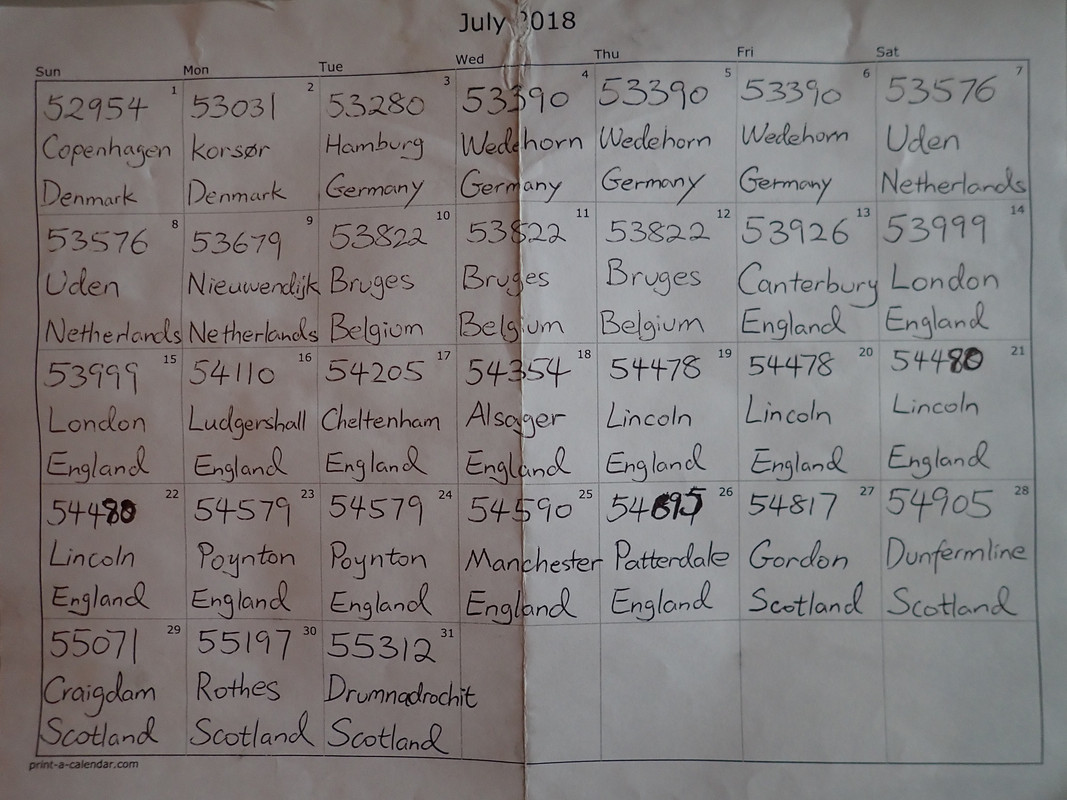 July 2018
Sun Mon Tue Wed Thu Fri Sat
1 2 3 4 5 6 7
52954 53031 53280 53390 53390 53390 53576
Copenhagen Korsør Hamburg Wedehorn Wedehorn Wedehorn Uden
Denmark Denmark Germany Germany Germany Germany Netherlands
8 9 10 11 12 13 14
53576 53679 53822 53822 53822 53926 53999
Uden Nieuwendijk Bruges Bruges Bruges Canterbury London
Netherlands Netherlands Belgium Belgium Belgium England England
15 16 17 18 19 20 21
53999 54110 54205 54354 54478 54478 54480
London Ludgershall Cheltenham Alsager Lincoln Lincoln Lincoln
England England England England England England England
22 23 24 25 26 27 28
54480 54579 54579 54590 54695 54817 54905
Lincoln Poynton Poynton Manchester Patterdale Gordon Dunfermline
England England England England England Scotland Scotland
29 30 31
55071 55197 55312
Craigdam Rothes Drumnadrochit
Scotland Scotland Scotland
print-a-calendar.com